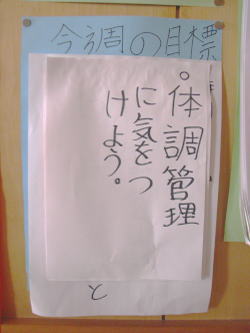 今調の目標
。体調管理
に気をつ
けよう。
と